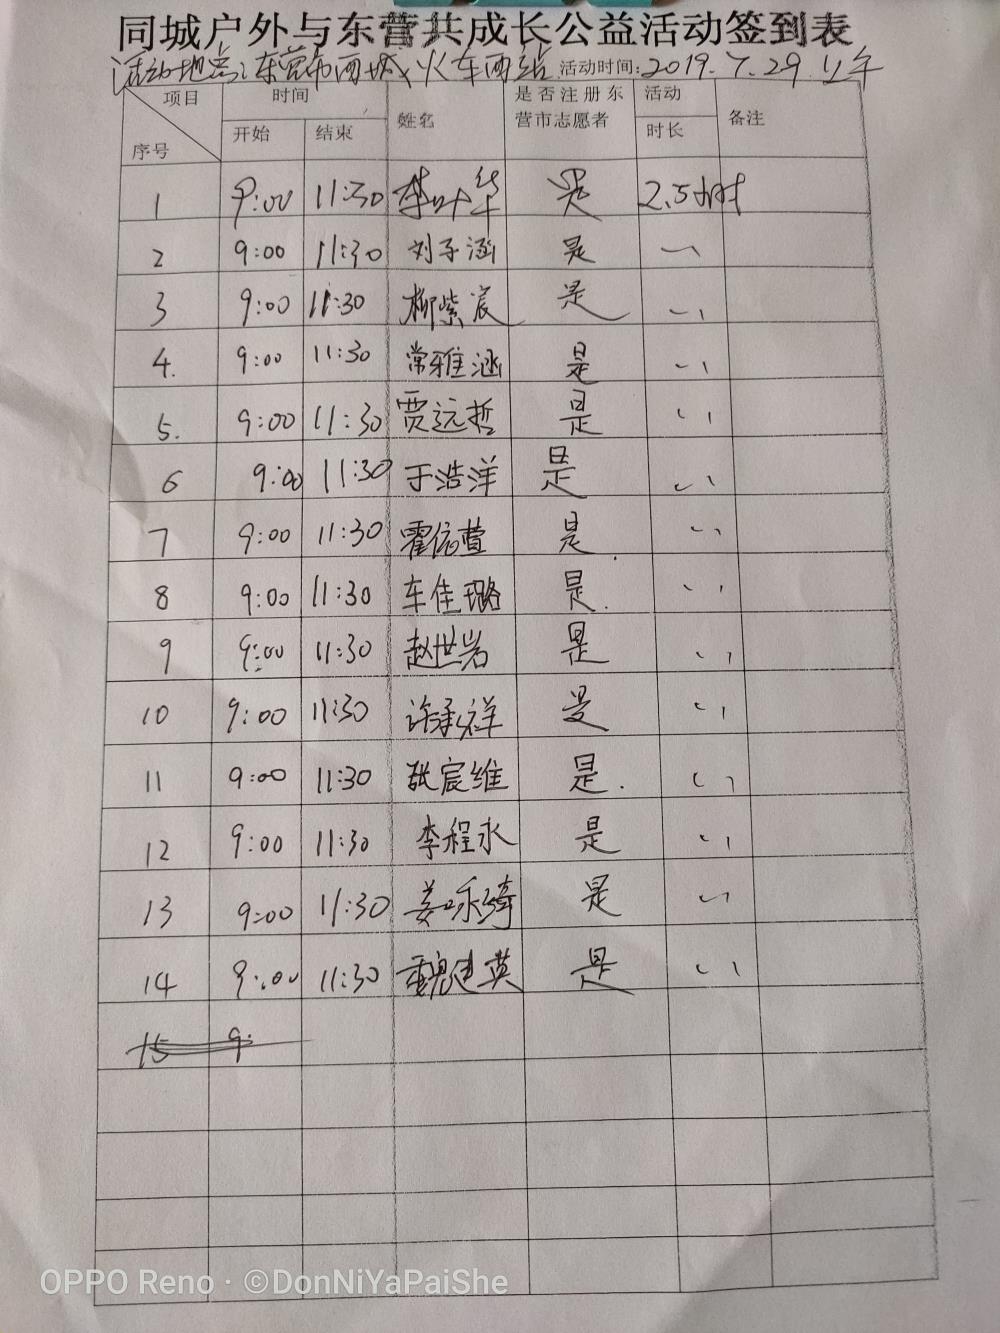 同城户外与东营共成长公益活动签到表
活动地点:东营市西城火车西站 活动时间:2019.7.29.上午
项目 时间 姓名 是否注册东 活动 备注
序号 开始 结束 营市志愿者 时长
1 9:00 11:30 李叶华 是 2.5小时
2 9:00 11:30 刘子涵 是 〃
3 9:00 11:30 柳紫宸 是 〃
4. 9:00 11:30 常雅涵 是 〃
5. 9:00 11:30 贾远哲 是 〃
6 9:00 11:30 于浩洋 是 〃
7 9:00 11:30 霍信萱 是 〃
8 9:00 11:30 车佳璐 是. 〃
9 9:00 11:30 赵世岩 是 〃
10 9:00 11:30 许承祥 是 〃
11 9:00 11:30 张宸维 是. 〃
12 9:00 11:30 李程永 是 〃
13 9:00 11:30 姜咏琦 是 〃
14 9:00 11:30 魏建英 是 〃
15 9:
OPPO Reno · ©DonNiYaPaiShe